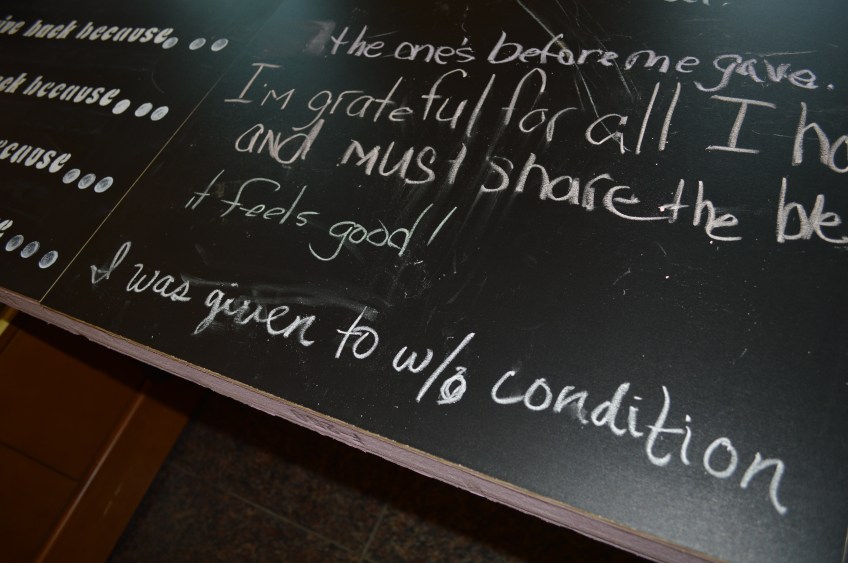 back because...
because...
the one's before me gave.
I'm grateful for all I
and must share the
it feels good!
I was given to w/o condition